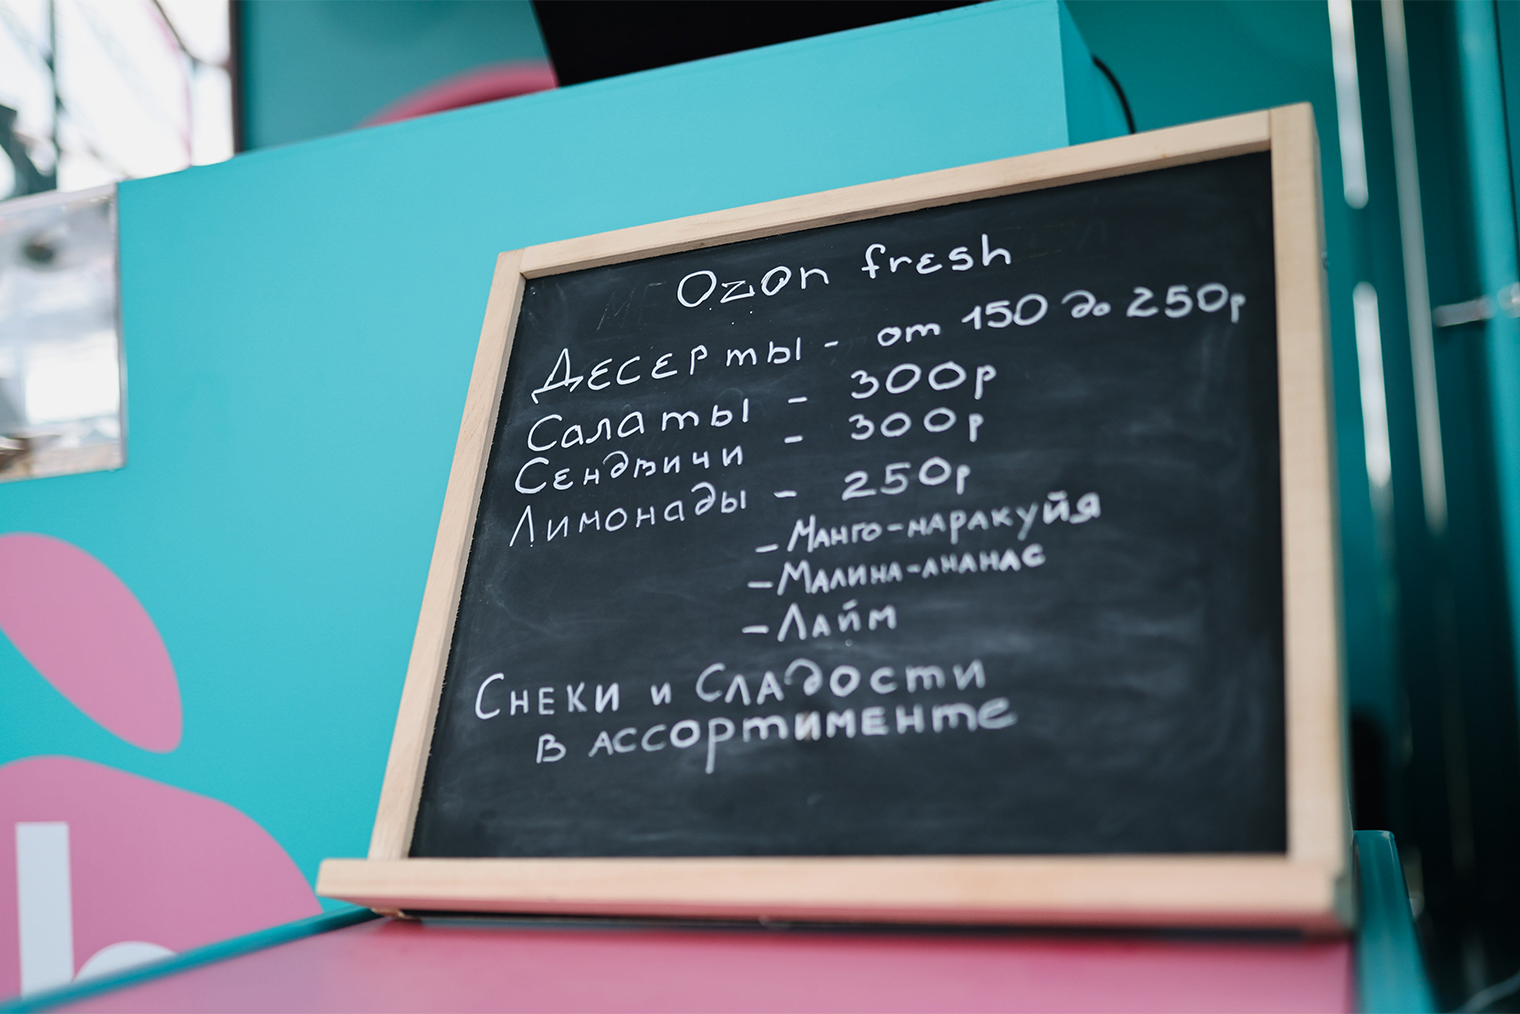 Ozon fresh
Десерты - от 150 до 250р
Салаты - 300р
Сендвичи - 300р
Лимонады - 250р
- Манго-маракуйя
- Малина-ананас
- Лайм
Снеки и Сладости
в ассортименте